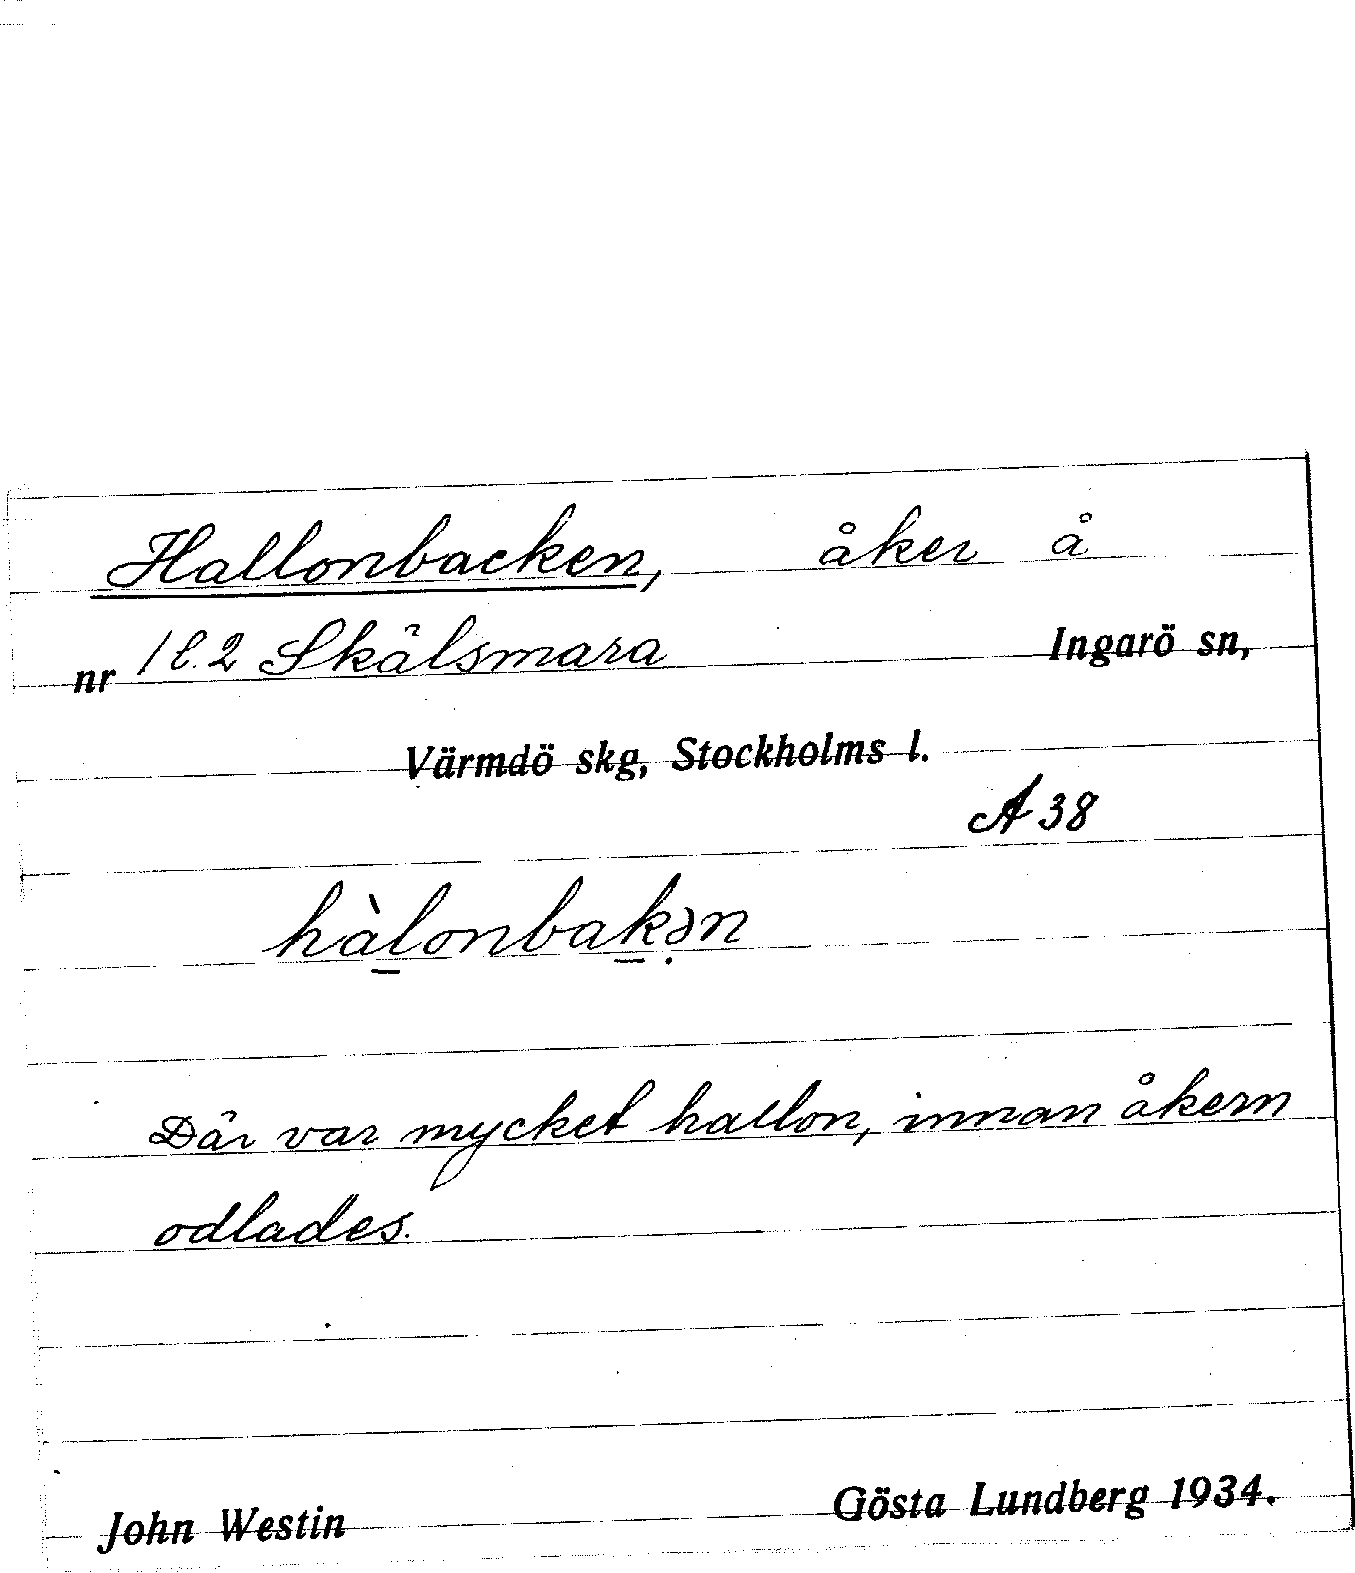 Hallonbacken, åker å
nr 1 l. 2 Skälsmara Ingarö sn,
Värmdö skg, Stockholms l.
A 38
hàl̲onbak̲ə̣n
Där var mycket hallon, innan åkern
odlades.
John Westin Gösta Lundberg 1934.